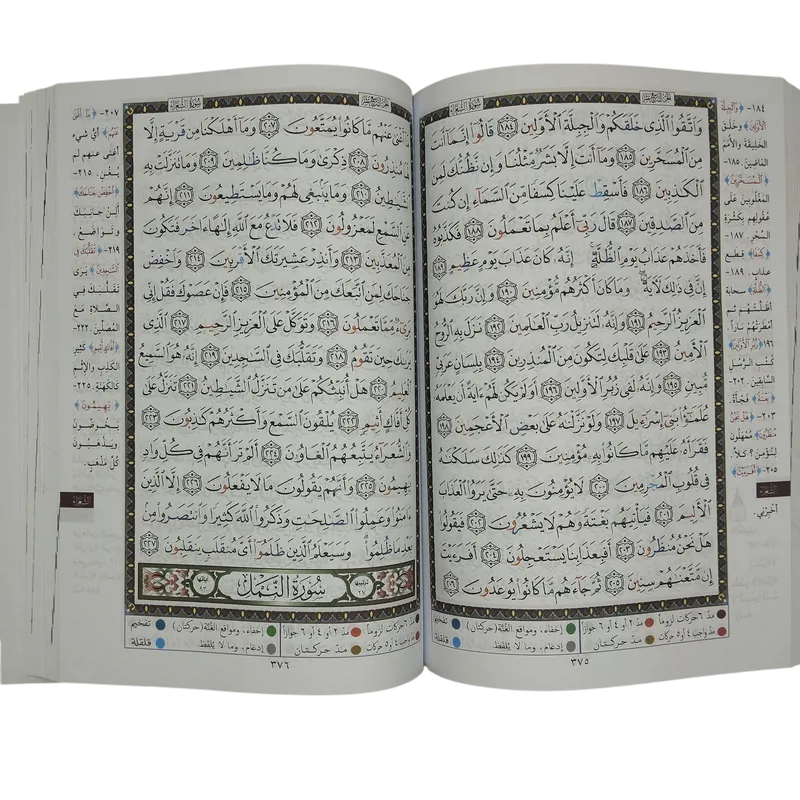 سورة الشعراء
وَاتَّقُوا الَّذِي خَلَقَكُمْ وَالْجِبِلَّةَ الْأَوَّلِينَ ١٨٤ قَالُوا إِنَّمَا أَنتَ
مِنَ الْمُسَحَّرِينَ ١٨٥ وَمَا أَنتَ إِلَّا بَشَرٌ مِّثْلُنَا وَإِن نَّظُنُّكَ لَمِنَ
الْكَاذِبِينَ ١٨٦ فَأَسْقِطْ عَلَيْنَا كِسَفًا مِّنَ السَّمَاءِ إِن كُنتَ
مِنَ الصَّادِقِينَ ١٨٧ قَالَ رَبِّي أَعْلَمُ بِمَا تَعْمَلُونَ ١٨٨ فَكَذَّبُوهُ
فَأَخَذَهُمْ عَذَابُ يَوْمِ الظُّلَّةِ إِنَّهُ كَانَ عَذَابَ يَوْمٍ عَظِيمٍ ١٨٩
إِنَّ فِي ذَٰلِكَ لَآيَةً وَمَا كَانَ أَكْثَرُهُم مُّؤْمِنِينَ ١٩٠ وَإِنَّ رَبَّكَ لَهُوَ
الْعَزِيزُ الرَّحِيمُ ١٩١ وَإِنَّهُ لَتَنزِيلُ رَبِّ الْعَالَمِينَ ١٩٢ نَزَلَ بِهِ الرُّوحُ
الْأَمِينُ ١٩٣ عَلَىٰ قَلْبِكَ لِتَكُونَ مِنَ الْمُنذِرِينَ ١٩٤ بِلِسَانٍ عَرَبِيٍّ
مُّبِينٍ ١٩٥ وَإِنَّهُ لَفِي زُبُرِ الْأَوَّلِينَ ١٩٦ أَوَلَمْ يَكُن لَّهُمْ آيَةً أَن يَعْلَمَهُ
عُلَمَاءُ بَنِي إِسْرَائِيلَ ١٩٧ وَلَوْ نَزَّلْنَاهُ عَلَىٰ بَعْضِ الْأَعْجَمِينَ ١٩٨
فَقَرَأَهُ عَلَيْهِم مَّا كَانُوا بِهِ مُؤْمِنِينَ ١٩٩ كَذَٰلِكَ سَلَكْنَاهُ
فِي قُلُوبِ الْمُجْرِمِينَ ٢٠٠ لَا يُؤْمِنُونَ بِهِ حَتَّىٰ يَرَوُا الْعَذَابَ
الْأَلِيمَ ٢٠١ فَيَأْتِيَهُم بَغْتَةً وَهُمْ لَا يَشْعُرُونَ ٢٠٢ فَيَقُولُوا
هَلْ نَحْنُ مُنظَرُونَ ٢٠٣ أَفَبِعَذَابِنَا يَسْتَعْجِلُونَ ٢٠٤ أَفَرَأَيْتَ
إِن مَّتَّعْنَاهُمْ سِنِينَ ٢٠٥ ثُمَّ جَاءَهُم مَّا كَانُوا يُوعَدُونَ ٢٠٦
١٨٤- ﴿وَالْجِبِلَّةَ
الْأَوَّلِينَ﴾ وخلق
الخليقة والأمم
الماضين. ١٨٥-
﴿الْمُسَحَّرِينَ﴾
المغلوبين على
عقولهم بكثرة
السحر. ١٨٧-
﴿كِسَفًا﴾ قطع
عذاب. ١٨٩-
﴿الظُّلَّةِ﴾ سحابة
أظلتهم ثم
أمطرتهم ناراً.
١٩٦ ﴿زُبُرِ الْأَوَّلِينَ﴾
كتب الرسل
السابقين. ٢٠٢-
﴿بَغْتَةً﴾ فجأة.
٢٠٣- ﴿هَلْ نَحْنُ
مُنظَرُونَ﴾ ممهلون
لنؤمن؟ كلا.
٢٠٥- ﴿أَفَرَأَيْتَ﴾
أخبرني.
الشعراء
مدّ ٦ حركات لزوماً مدّ ٢ أو ٤ أو ٦ جوازاً إخفاء، ومواقع الغنّة (حركتان) تفخيم
مدّ واجب ٤ أو ٥ حركات مدّ حركتان إدغام، وما لا يُلفظ قلقلة
٣٧٥
سورة الشعراء
مَا أَغْنَىٰ عَنْهُم مَّا كَانُوا يُمَتَّعُونَ ٢٠٧ وَمَا أَهْلَكْنَا مِن قَرْيَةٍ إِلَّا
لَهَا مُنذِرُونَ ٢٠٨ ذِكْرَىٰ وَمَا كُنَّا ظَالِمِينَ ٢٠٩ وَمَا تَنَزَّلَتْ بِهِ
الشَّيَاطِينُ ٢١٠ وَمَا يَنبَغِي لَهُمْ وَمَا يَسْتَطِيعُونَ ٢١١ إِنَّهُمْ
عَنِ السَّمْعِ لَمَعْزُولُونَ ٢١٢ فَلَا تَدْعُ مَعَ اللَّهِ إِلَٰهًا آخَرَ فَتَكُونَ
مِنَ الْمُعَذَّبِينَ ٢١٣ وَأَنذِرْ عَشِيرَتَكَ الْأَقْرَبِينَ ٢١٤ وَاخْفِضْ
جَنَاحَكَ لِمَنِ اتَّبَعَكَ مِنَ الْمُؤْمِنِينَ ٢١٥ فَإِنْ عَصَوْكَ فَقُلْ إِنِّي
بَرِيءٌ مِّمَّا تَعْمَلُونَ ٢١٦ وَتَوَكَّلْ عَلَى الْعَزِيزِ الرَّحِيمِ ٢١٧ الَّذِي
يَرَاكَ حِينَ تَقُومُ ٢١٨ وَتَقَلُّبَكَ فِي السَّاجِدِينَ ٢١٩ إِنَّهُ هُوَ السَّمِيعُ
الْعَلِيمُ ٢٢٠ هَلْ أُنَبِّئُكُمْ عَلَىٰ مَن تَنَزَّلُ الشَّيَاطِينُ ٢٢١ تَنَزَّلُ عَلَىٰ
كُلِّ أَفَّاكٍ أَثِيمٍ ٢٢٢ يُلْقُونَ السَّمْعَ وَأَكْثَرُهُمْ كَاذِبُونَ ٢٢٣
وَالشُّعَرَاءُ يَتَّبِعُهُمُ الْغَاوُونَ ٢٢٤ أَلَمْ تَرَ أَنَّهُمْ فِي كُلِّ وَادٍ
يَهِيمُونَ ٢٢٥ وَأَنَّهُمْ يَقُولُونَ مَا لَا يَفْعَلُونَ ٢٢٦ إِلَّا الَّذِينَ
آمَنُوا وَعَمِلُوا الصَّالِحَاتِ وَذَكَرُوا اللَّهَ كَثِيرًا وَانتَصَرُوا مِن
بَعْدِ مَا ظُلِمُوا وَسَيَعْلَمُ الَّذِينَ ظَلَمُوا أَيَّ مُنقَلَبٍ يَنقَلِبُونَ ٢٢٧
ترتيبها ٢٧ سُورَةُ النَّمْلِ آياتها ٩٣
٢٠٧- ﴿مَا أَغْنَىٰ
عَنْهُم﴾ أي شيء
أغنى عنهم لم
يُغن. ٢١٥-
﴿وَاخْفِضْ جَنَاحَكَ﴾
ألن جانبك
وتواضع.
٢١٩- ﴿وَتَقَلُّبَكَ فِي
السَّاجِدِينَ﴾ يرى
تقلّبك في
الصلاة مع
المصلين. ٢٢٢-
﴿أَفَّاكٍ أَثِيمٍ﴾ كثير
الكذب والإثم
كالكهنة. ٢٢٥-
﴿يَهِيمُونَ﴾
يخوضون
ويذهبون
كل مذهب.
الشعراء
مدّ ٦ حركات لزوماً مدّ ٢ أو ٤ أو ٦ جوازاً إخفاء، ومواقع الغنّة (حركتان) تفخيم
مدّ واجب ٤ أو ٥ حركات مدّ حركتان إدغام، وما لا يُلفظ قلقلة
٣٧٦